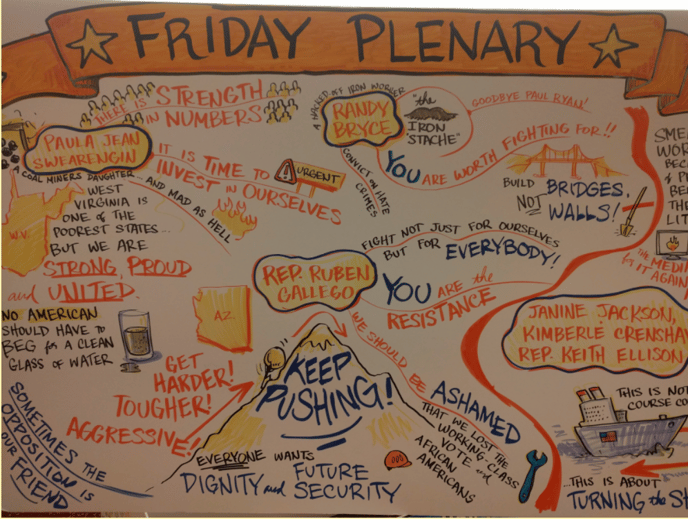 FRIDAY PLENARY
THERE IS STRENGTH
IN NUMBERS
PAULA JEAN
SWEARENGIN
A COAL MINERS DAUGHTER... AND MAD AS HELL
IT IS TIME TO
INVEST IN OURSELVES
! URGENT
W.V.
WEST
VIRGINIA IS
ONE of the
POOREST STATES...
BUT WE ARE
STRONG, PROUD
and UNITED.
NO AMERICAN
SHOULD HAVE to
BEG for a CLEAN
GLASS of WATER
SOMETIMES THE
OPPOSITION IS
OUR FRIEND
A HACKED OFF IRON WORKER
RANDY
BRYCE
"the
IRON
'STACHE"
GOODBYE PAUL RYAN!
CONVICT ON HATE
CRIMES
YOU ARE WORTH FIGHTING FOR!!
BUILD BRIDGES,
NOT WALLS!
REP. RUBEN
GALLEGO
FIGHT NOT JUST FOR OURSELVES
BUT FOR EVERYBODY!
YOU ARE the
RESISTANCE
AZ.
GET
HARDER!
TOUGHER!
AGGRESSIVE!
KEEP
PUSHING!
WE SHOULD BE ASHAMED
THAT WE LOST THE
WORKING-CLASS
VOTE and
AFRICAN
AMERICANS
EVERYONE WANTS
DIGNITY and FUTURE
SECURITY
SME
WOR
BEC
& P
BE
THE
LIT
the MEDI
by IT AGAIN
JANINE JACKSON,
KIMBERLÉ CRENSHA
REP. KEITH ELLISON
THIS IS NO
COURSE CO
...THIS IS ABOUT
TURNING the SH